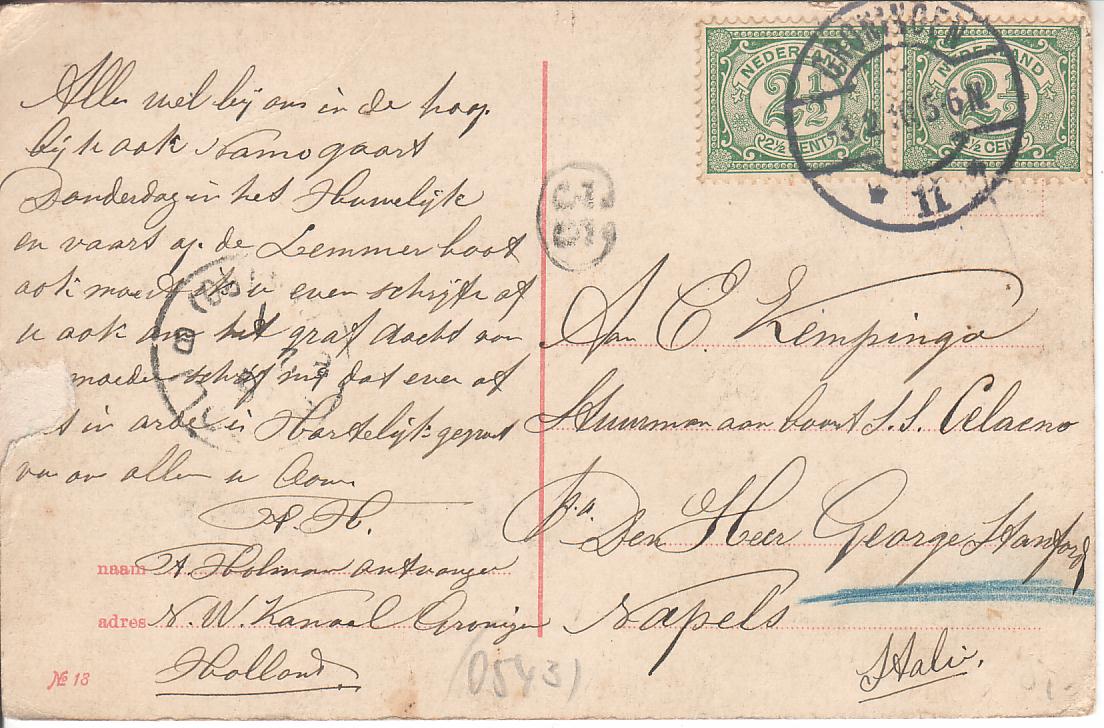 Alles wel bij ons in de hoop
bij u ook
Donderdag in het Huwelijk
en vaart op de Lemmer boot
ook moest ik u even schrijfe of
u ook om het graf dacht van
moeder schrijf mij dat even of
t in orde is Hartelijk gegroet
van allen u Oom
A. H.
naam A Holman ontvanger
adres N. W. Kanaal Groningen
Holland
№ 13
(0543)
NEDERLAND
2½
2½ CENT
NEDERLAND
2½
2½ CENT
GRONINGEN
3.2.10.5-6N
11
Aan C. Kempinga
Stuurman aan boort S.S. Celaeno
p.a. Den Heer George Stanford
Napels
Italie.